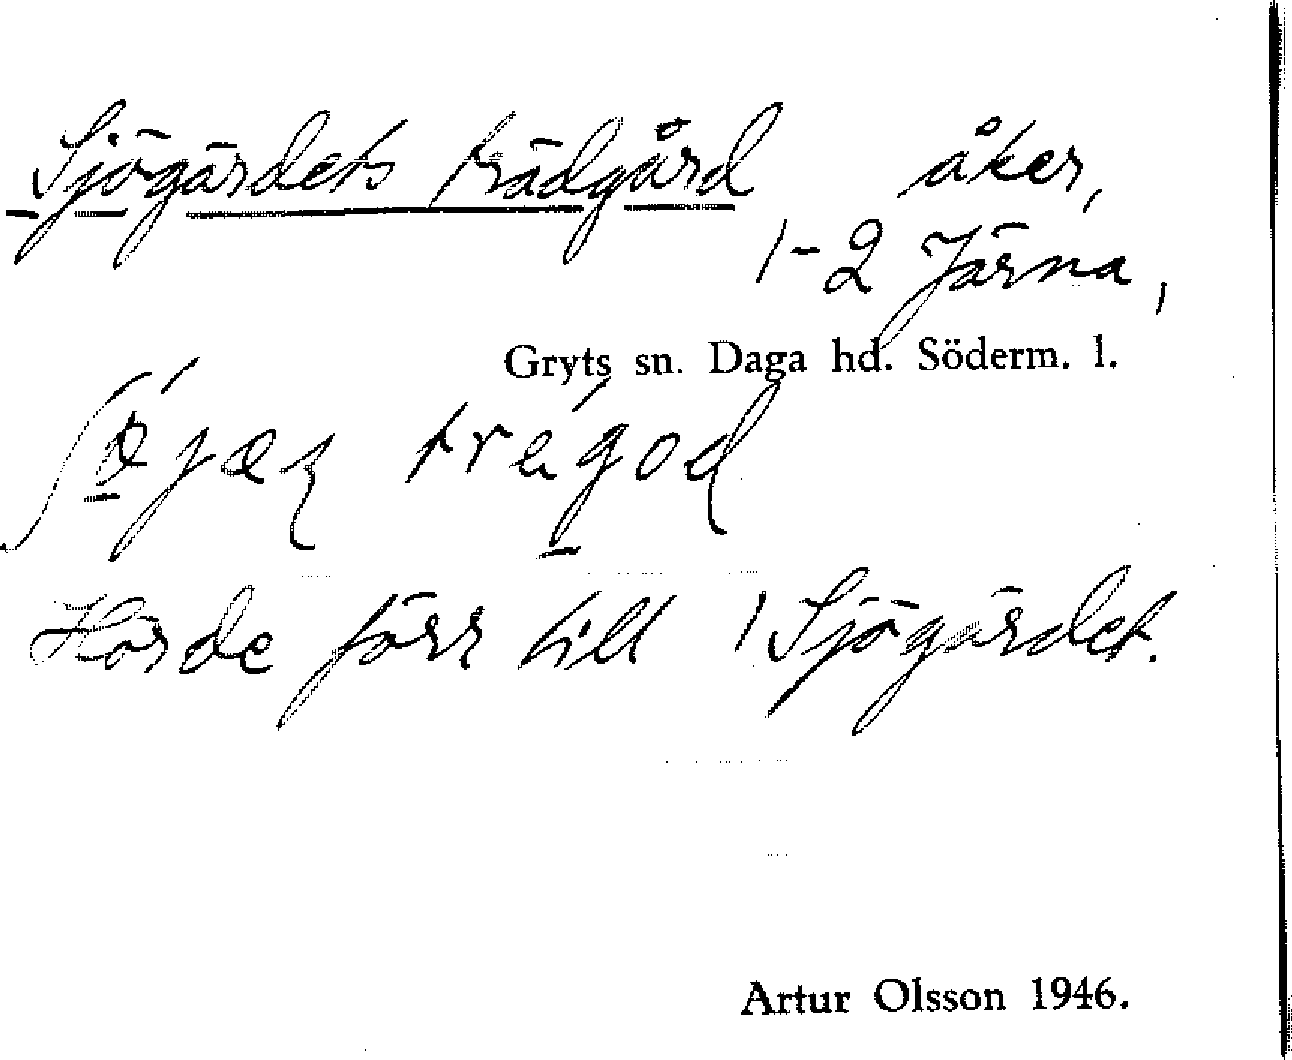 Sjögärdets trädgård åker,
1-2 Järna,
Gryts sn. Daga hd. Söderm. l.
Hörde förr till 1 Sjögärdet.
Artur Olsson 1946.